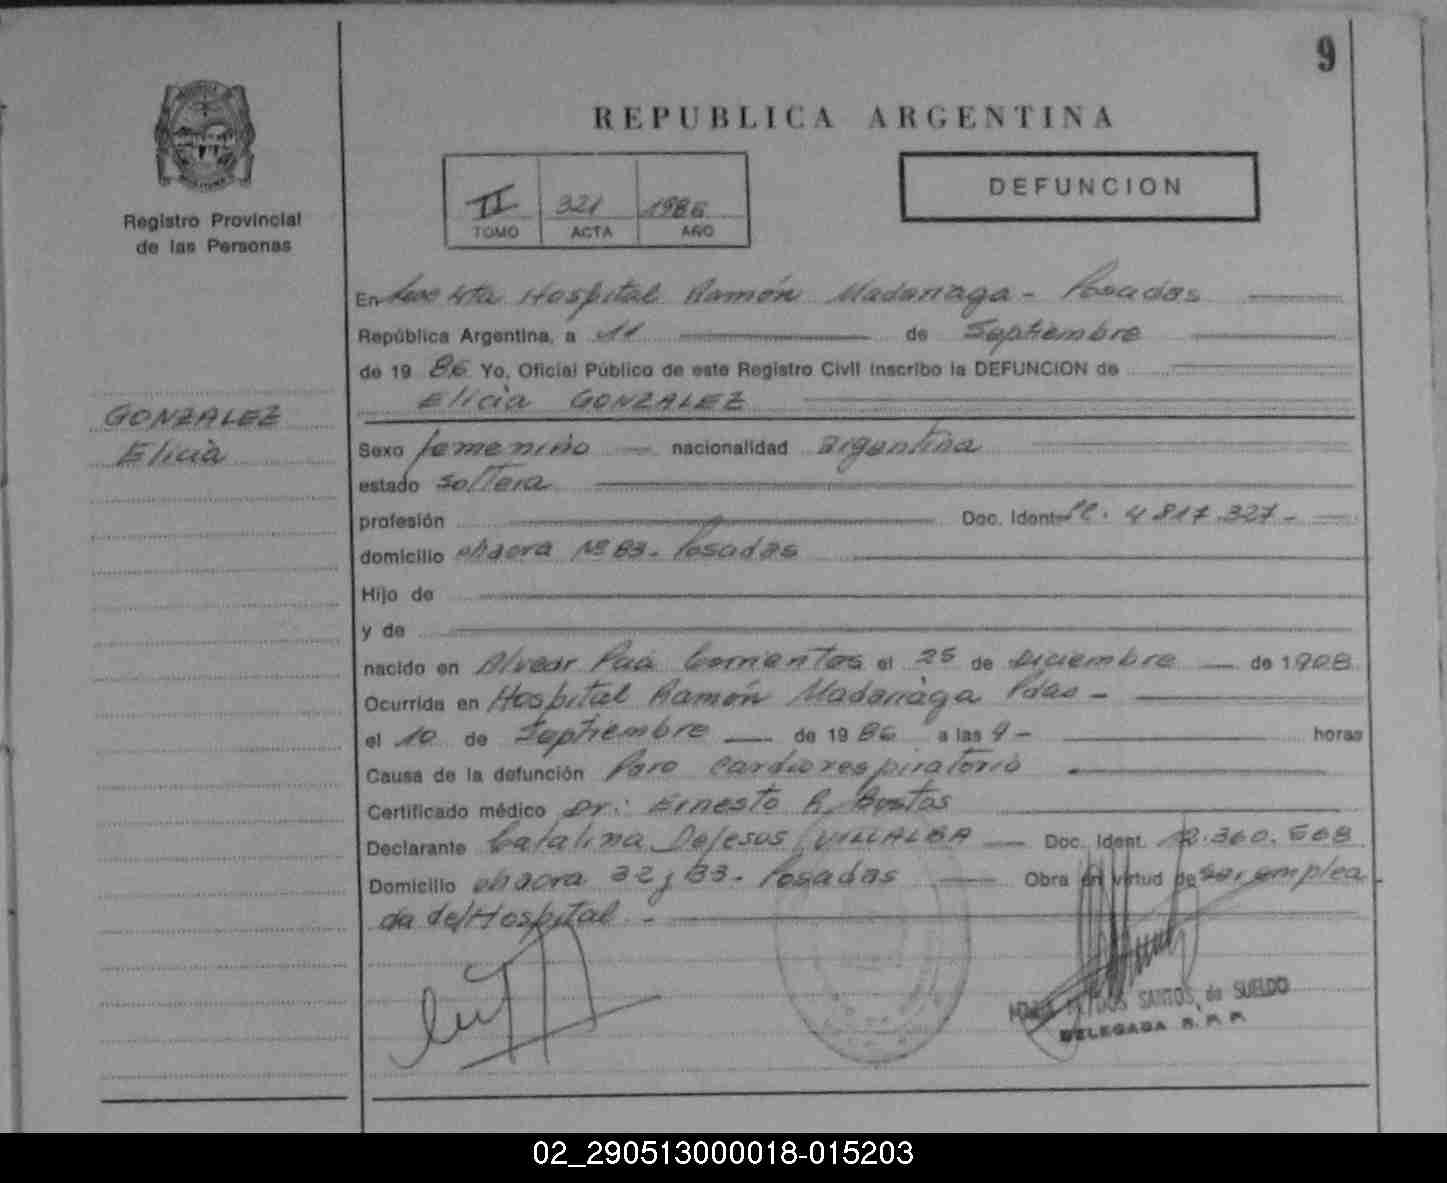 9
REPUBLICA ARGENTINA
DEFUNCION
II 321 1986
TOMO ACTA AÑO
Registro Provincial
de las Personas
GONZALEZ
Elicia
En Hospital Ramón Madariaga - Posadas
República Argentina, a 11 de Septiembre
de 19 86 Yo, Oficial Público de este Registro Civil inscribo la DEFUNCION de
Elicia GONZALEZ
Sexo femenino nacionalidad argentina
estado soltera
profesión Doc. Ident. 4 817.327-
domicilio chacra Nº 83. Posadas
Hijo de
y de
nacido en Alvear Pcia Corrientes el 25 de Diciembre de 1908
Ocurrida en Hospital Ramón Madariaga Pdas -
el 10 de Septiembre de 19 86 a las 9 - horas
Causa de la defunción Paro cardiorespiratorio
Certificado médico Dr.: Ernesto R. Bustos
Declarante Catalina Dejesus VILLALBA Doc. Ident. 12.360.568
Domicilio chacra 32 y 33. Posadas Obra en virtud de ser emplea
da del Hospital. -
DOS SANTOS de SUELDO
DELEGADA R. P. P.
02_290513000018-015203